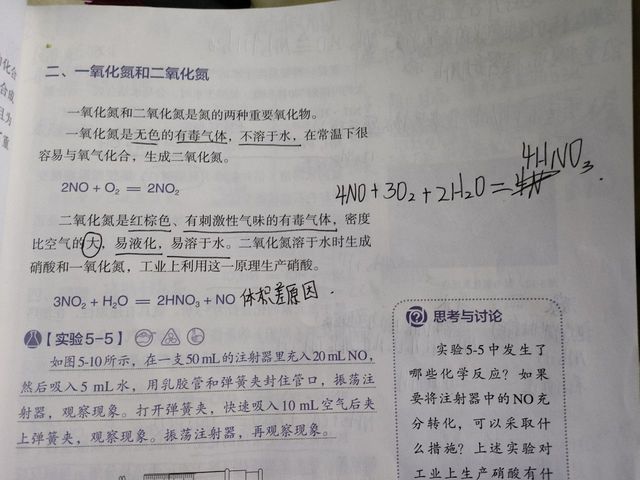 二、一氧化氮和二氧化氮
一氧化氮和二氧化氮是氮的两种重要氧化物。
一氧化氮是无色的有毒气体，不溶于水，在常温下很
容易与氧气化合，生成二氧化氮。
2NO + O₂ ═ 2NO₂
4NO+3O₂+2H₂O=4HNO₃.
二氧化氮是红棕色、有刺激性气味的有毒气体，密度
比空气的大，易液化，易溶于水。二氧化氮溶于水时生成
硝酸和一氧化氮，工业上利用这一原理生产硝酸。
3NO₂ + H₂O ═ 2HNO₃ + NO 体积差原因.
【实验5-5】
如图5-10所示，在一支50 mL的注射器里充入20 mL NO，
然后吸入 5 mL 水，用乳胶管和弹簧夹封住管口，振荡注
射器，观察现象。打开弹簧夹，快速吸入 10 mL 空气后夹
上弹簧夹，观察现象。振荡注射器，再观察现象。
思考与讨论
实验5-5中发生了
哪些化学反应？如果
要将注射器中的NO充
分转化，可以采取什
么措施？上述实验对
工业上生产硝酸有什